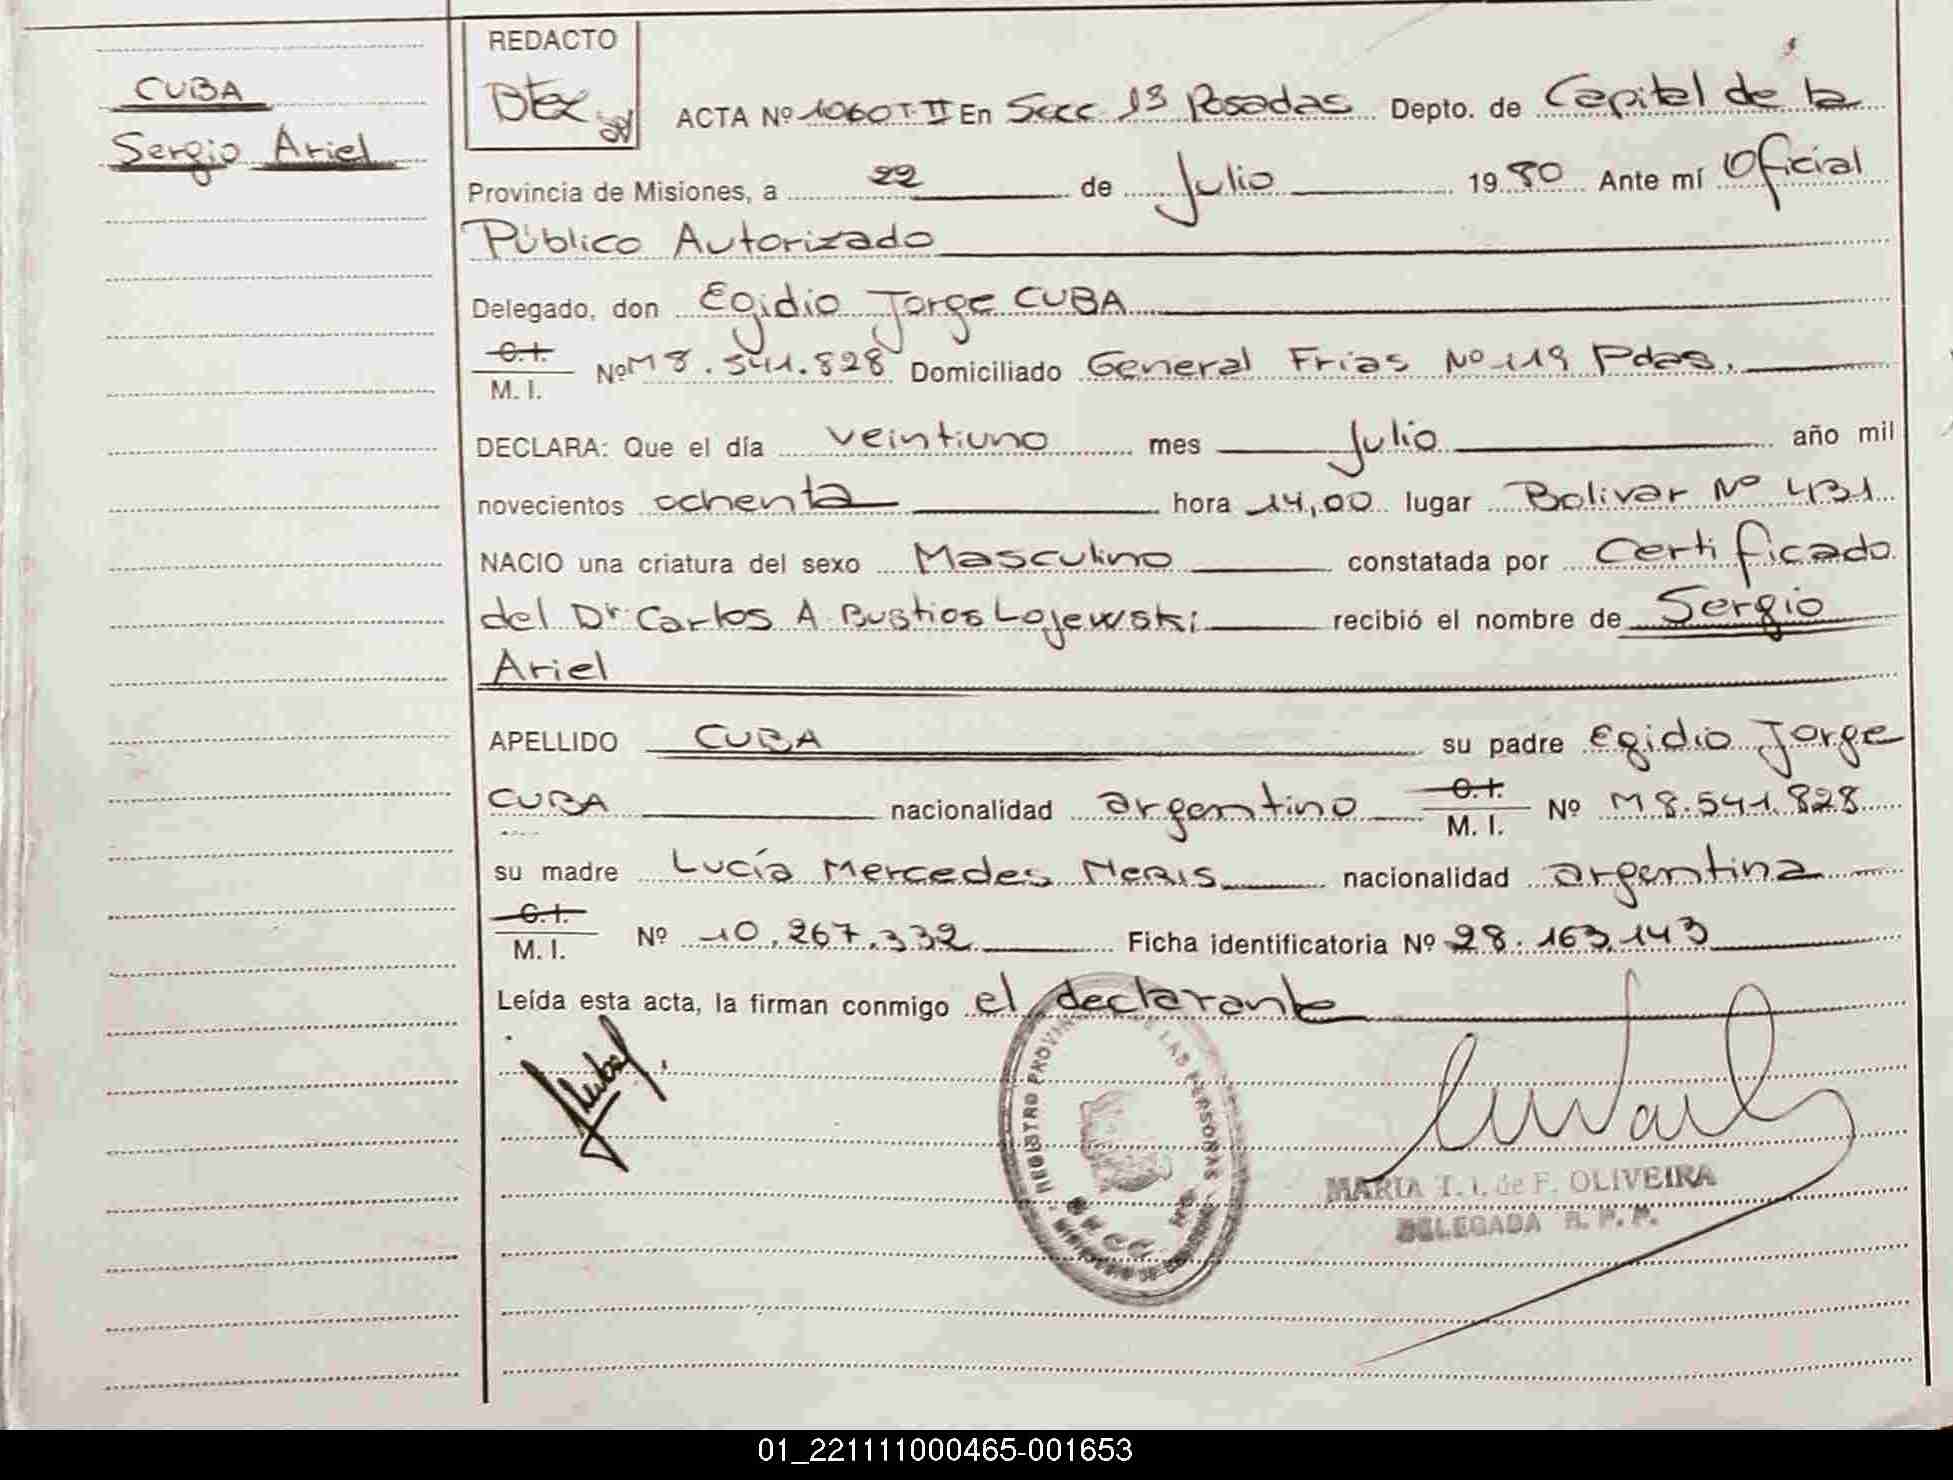 CUBA
Sergio Ariel
REDACTO
ACTA Nº 1060 T-II En Secc 1ª Posadas Depto. de Capital de la
Provincia de Misiones, a 22 de Julio 1980 Ante mí Oficial
Público Autorizado
Delegado, don Egidio Jorge CUBA
C.I.
M. I. Nº M 8.541.828 Domiciliado General Frias Nº 119 Pdas.
DECLARA: Que el día veintiuno mes Julio año mil
novecientos ochenta hora 14,00 lugar Bolivar Nº 431
NACIO una criatura del sexo Masculino constatada por Certificado
del Dr Carlos A. Bustios Lojewski recibió el nombre de Sergio
Ariel
APELLIDO CUBA su padre Egidio Jorge
CUBA nacionalidad argentino C.I.
M. I. Nº M 8.541.828
su madre Lucía Mercedes nacionalidad argentina
C.I.
M. I. Nº 10.267.332 Ficha identificatoria Nº 28.163.143
Leída esta acta, la firman conmigo el declarante
REGISTRO PROVIN DE LAS PERSONAS
SECC
MARIA T. I. de F. OLIVEIRA
DELEGADA R. P. P.
01_221111000465-001653